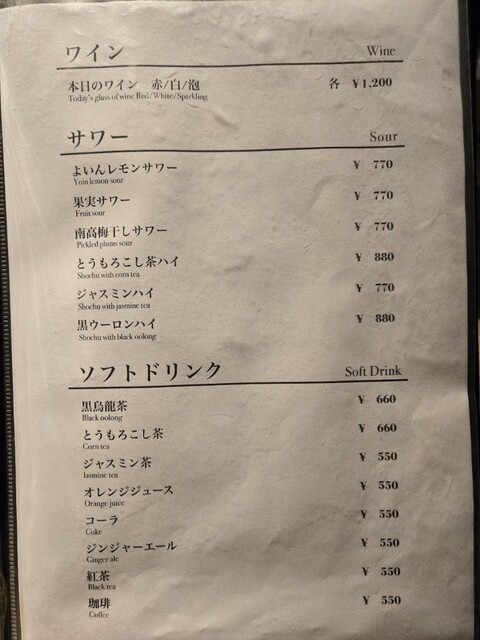 ワイン Wine
本日のワイン 赤/白/泡 各 ¥1,200
Today's glass of wine Red/White/Sparkling
サワー Sour
よいんレモンサワー ¥ 770
Yoin lemon sour
果実サワー ¥ 770
Fruit sour
南高梅干しサワー ¥ 770
Pickled plums sour
とうもろこし茶ハイ ¥ 880
Shochu with corn tea
ジャスミンハイ ¥ 770
Shochu with jasmine tea
黒ウーロンハイ ¥ 880
Shochu with black oolong
ソフトドリンク Soft Drink
黒烏龍茶 ¥ 660
Black oolong
とうもろこし茶 ¥ 660
Corn tea
ジャスミン茶 ¥ 550
Jasmine tea
オレンジジュース ¥ 550
Orange juice
コーラ ¥ 550
Coke
ジンジャーエール ¥ 550
Ginger ale
紅茶 ¥ 550
Black tea
珈琲 ¥ 550
Coffee